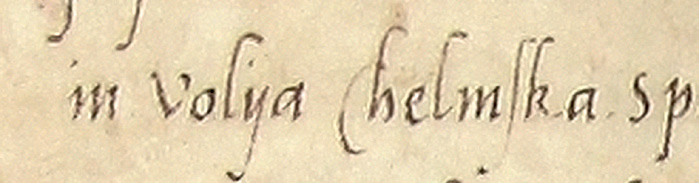 in Volya Chelmſka Sp